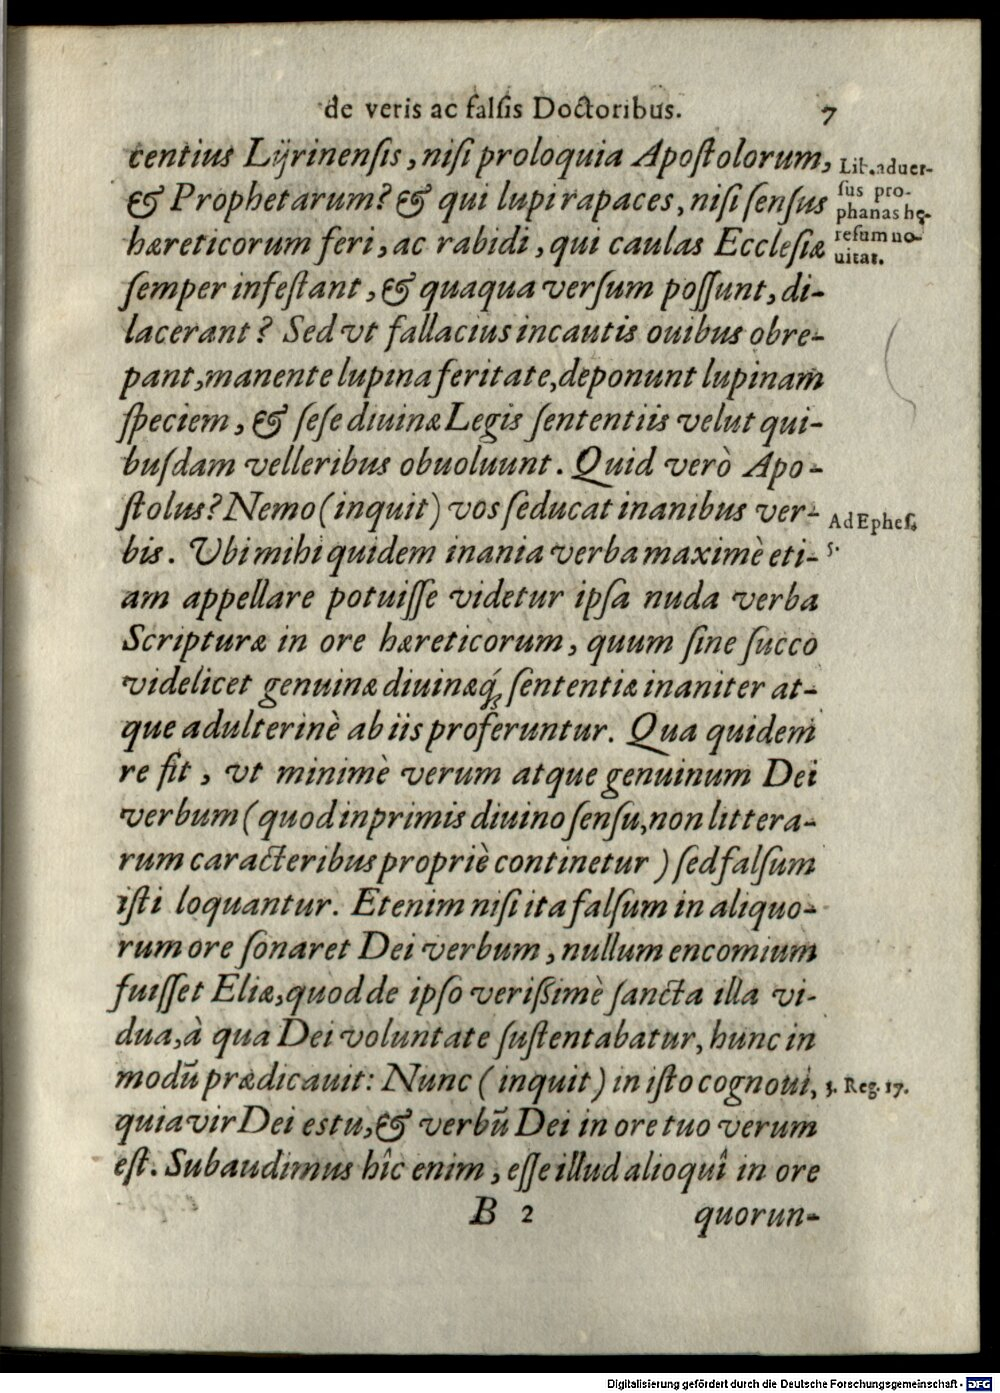 de veris ac falſis Doctoribus. 7
centius Lÿrinenſis, niſi proloquia Apoſtolorum,
& Prophetarum? & qui lupi rapaces, niſi ſenſus
hæreticorum feri, ac rabidi, qui caulas Eccleſiæ
ſemper infeſtant, & quaqua verſum poſſunt, di-
lacerant? Sed vt fallacius incautis ouibus obre-
pant, manente lupina feritate, deponunt lupinam
ſpeciem, & ſeſe diuinæ Legis ſententiis velut qui-
buſdam velleribus obuoluunt. Quid verò Apo-
ſtolus? Nemo (inquit) vos ſeducat inanibus ver-
bis. Vbi mihi quidem inania verba maximè eti-
am appellare potuiſſe videtur ipſa nuda verba
Scripturæ in ore hæreticorum, quum ſine ſucco
videlicet genuinæ diuinæq́ꝫ ſententiæ inaniter at-
que adulterinè ab iis proferuntur. Qua quidem
re fit, vt minimè verum atque genuinum Dei
verbum (quod inprimis diuino ſenſu, non littera-
rum caracteribus propriè continetur) ſed falſum
iſti loquantur. Etenim niſi ita falſum in aliquo-
rum ore ſonaret Dei verbum, nullum encomium
fuiſſet Eliæ, quod de ipſo veriſſimè ſancta illa vi-
dua, à qua Dei voluntate ſuſtentabatur, hunc in
modũ prædicauit: Nunc (inquit) in iſto cognoui,
quia vir Dei es tu, & verbũ Dei in ore tuo verum
eſt. Subaudimus hîc enim, eſſe illud alioquî in ore
B 2 quorun-
Lib. aduer-
ſus pro-
phanas hę-
reſum no-
uitat.
Ad Epheſ.
5.
3. Reg. 17.
Digitalisierung gefördert durch die Deutsche Forschungsgemeinschaft - DFG